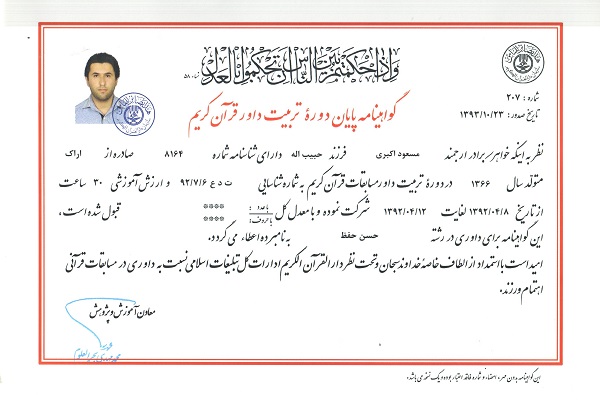 وَإِذَا حَكَمْتُمْ بَيْنَ النَّاسِ أَنْ تَحْكُمُوا بِالْعَدْلِ نساء ۵۸
گواهینامه پایان دورهٔ تربیت داور قرآن کریم
شماره : ۲۰۷
تاریخ صدور : ۱۳۹۳/۱۰/۲۳
نظر به اینکه خواهر/برادر ارجمند مسعود اکبری فرزند حبیب اله دارای شناسنامه شماره ۸۱۶۴ صادره از اراک
متولد سال ۱۳۶۶ در دورهٔ تربیت داور مسابقات قرآن کریم به شماره شناسایی ت د ع ۹۲/۷/۶ و ارزش آموزشی ۳۰ ساعت
از تاریخ ۱۳۹۲/۰۴/۸ لغایت ۱۳۹۲/۰۴/۱۲ شرکت نموده و با معدل کل با عدد : **** با حروف : **** قبول شده است ،
این گواهینامه برای داوری در رشته حسن حفظ به نامبرده اعطاء می گردد.
امید است با استمداد از الطاف خاصهٔ خداوند سبحان و تحت نظر دارالقرآن الکریم ادارات کل تبلیغات اسلامی نسبت به داوری در مسابقات قرآنی
اهتمام ورزند.
معاون آموزش و پژوهش
این گواهینامه بدون مهر ، امضاء و شماره فاقد اعتبار بوده و یک نسخه می باشد.